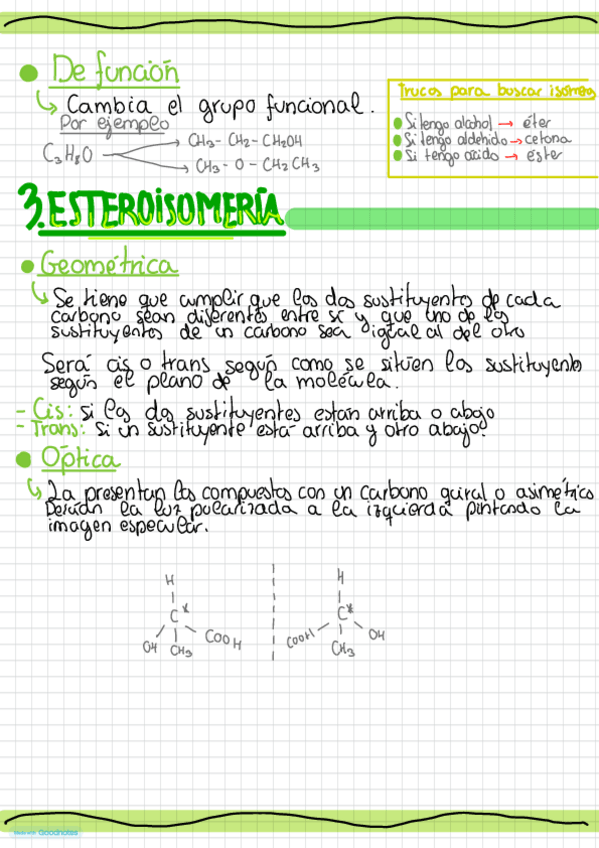 De función
Cambia el grupo funcional.
Por ejemplo
C3H8O
CH3 - CH2 - CH2OH
CH3 - O - CH2CH3
Trucos para buscar isómeros
Si tengo alcohol → éter
Si tengo aldehido → cetona
Si tengo ácido → éster
3. ESTEROISOMERÍA
Geométrica
Se tiene que cumplir que los dos sustituyentes de cada
carbono sean diferentes entre sí y que uno de los
sustituyentes de un carbono sea igual al del otro
Será cis o trans según como se sitúen los sustituyentes
según el plano de la molécula.
- Cis: si los dos sustituyentes estan arriba o abajo
- Trans: si un sustituyente está arriba y otro abajo.
Óptica
La presentan los compuestos con un carbono quiral o asimétrico
Desvían la luz polarizada a la izquierda pintando la
imagen especular.
H H
C* C*
OH CH3 COOH COOH CH3 OH
Made with Goodnotes